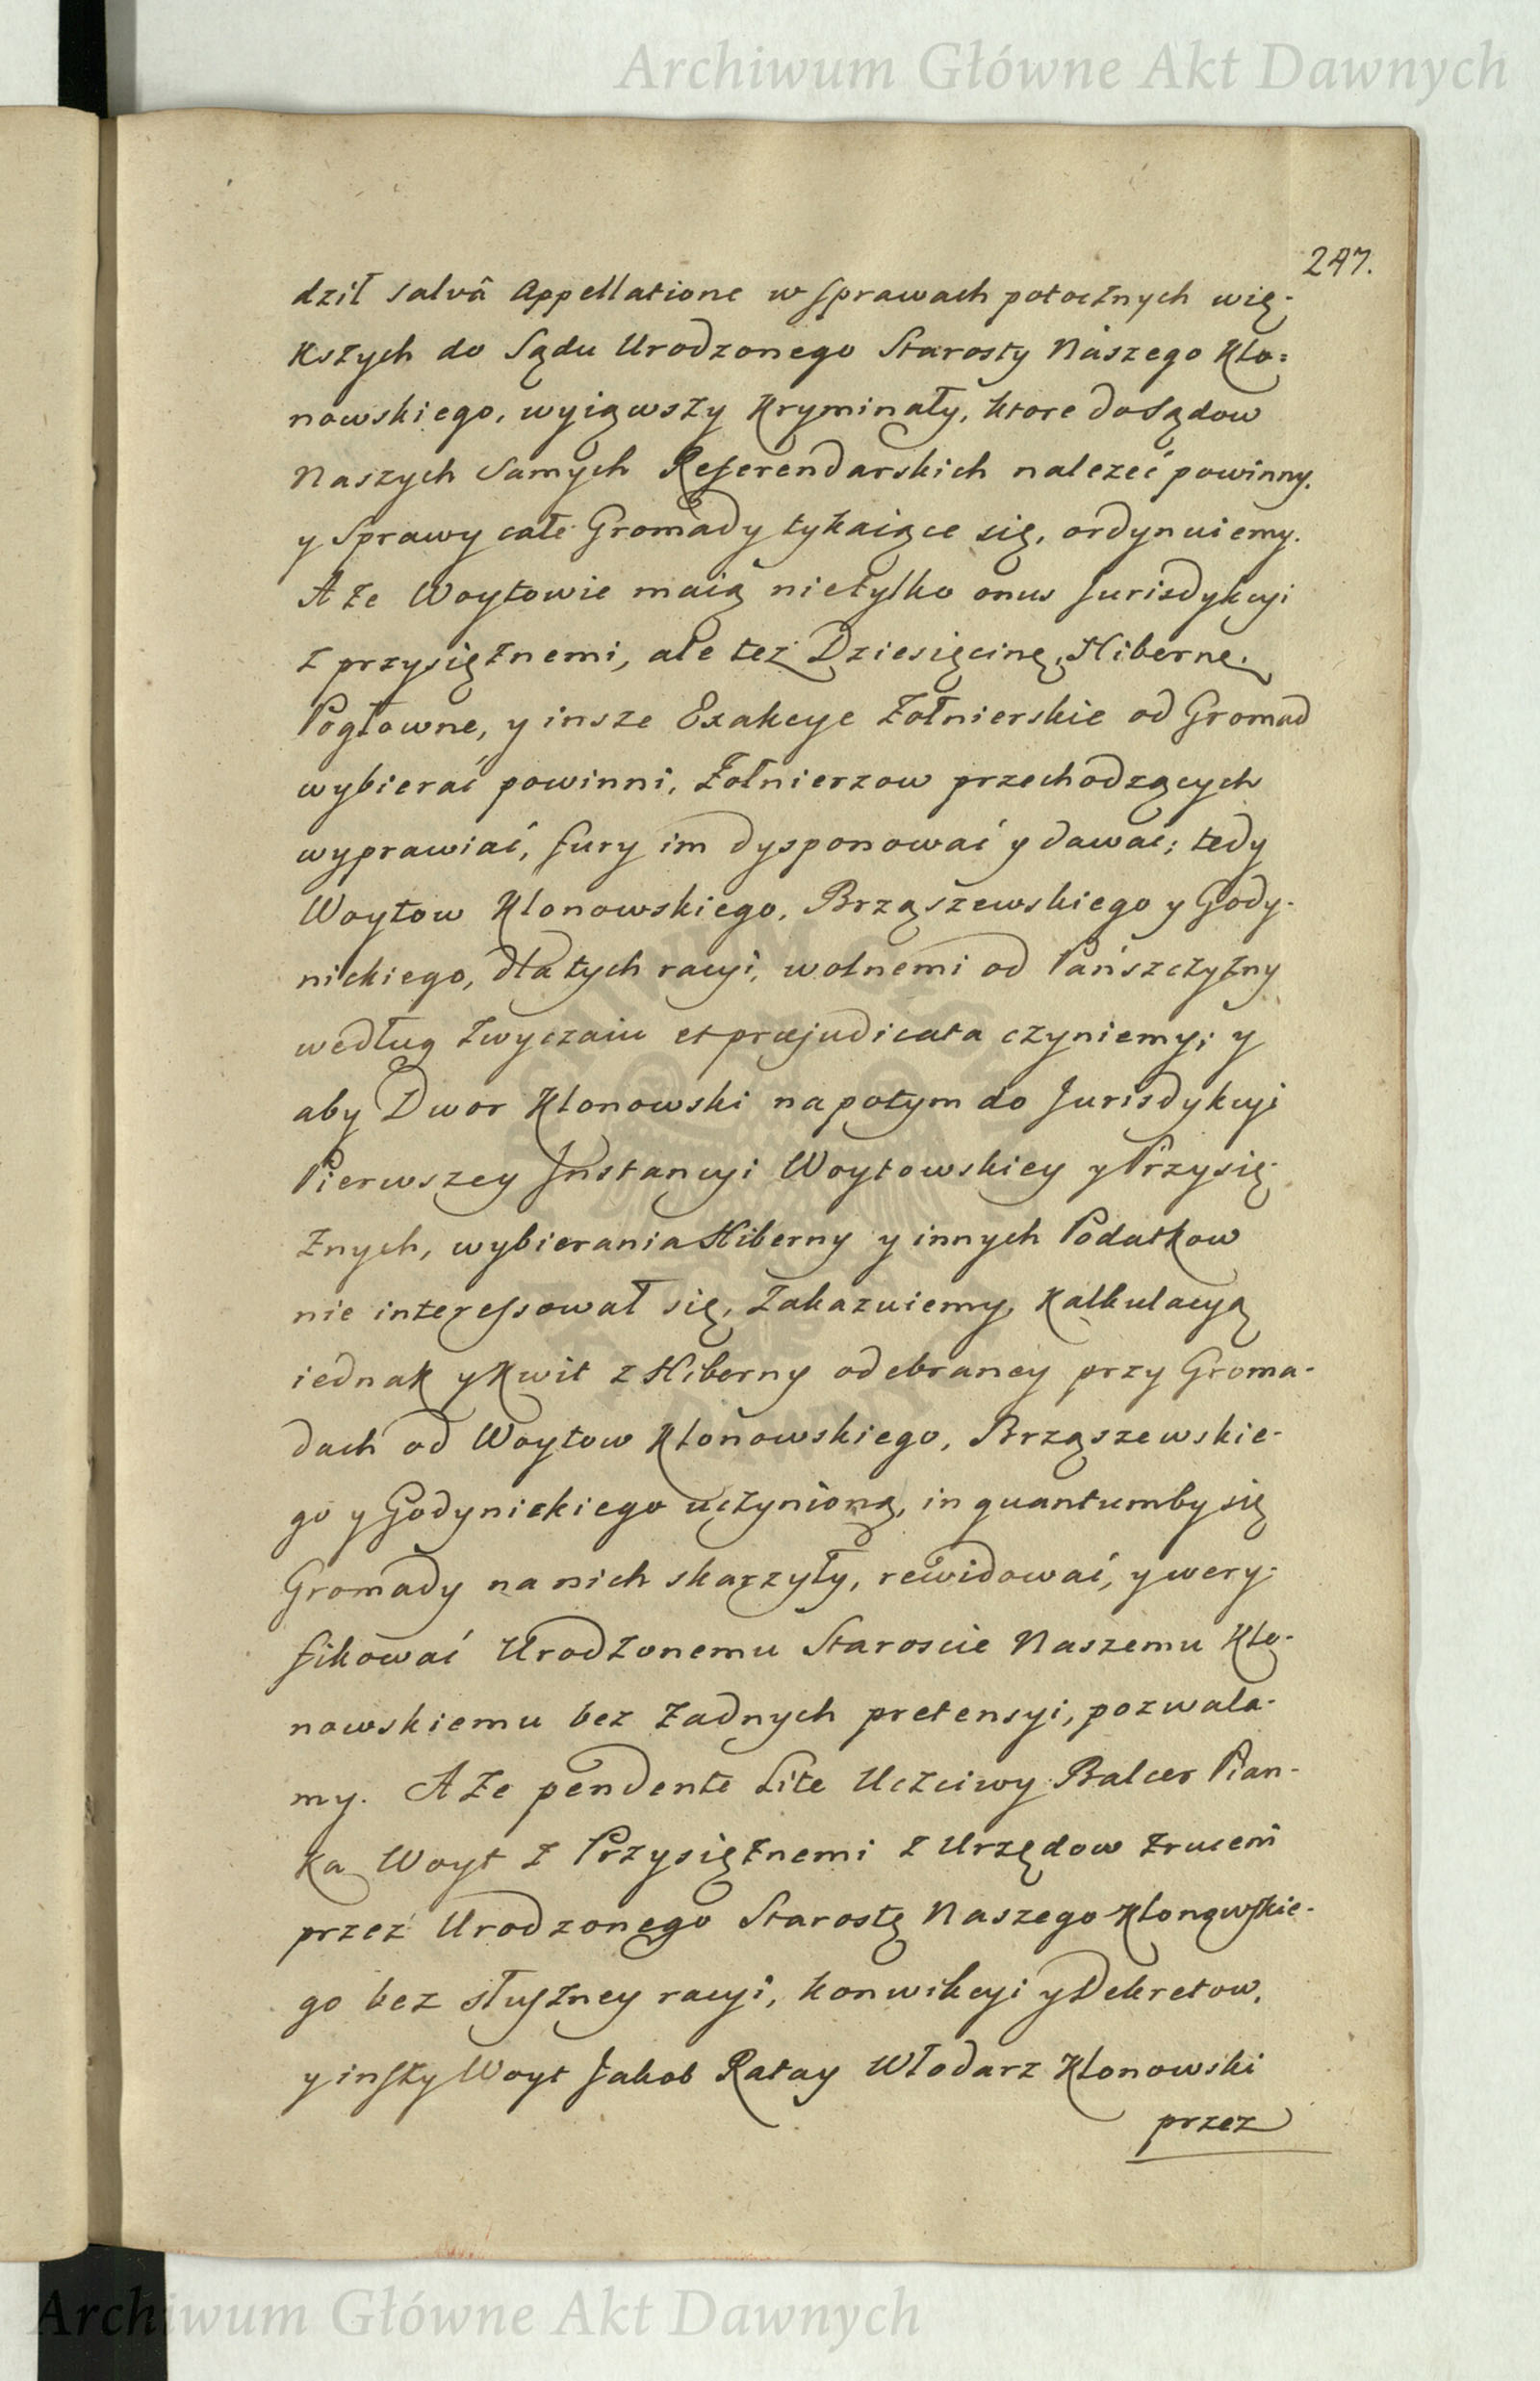 Archiwum Główne Akt Dawnych
247.
dził salvâ Appellatione w sprawach potocznych wię-
kszych do Sądu Urodzonego Starosty Naszego Klo=
nowskiego, wyiąwszy Kryminały, ktore do Sądow
Naszych Samych Referendarskich nalezeć powinny.
y Sprawy całe Gromady tykaiące się, ordynuiemy.
A że Woytowie maią nietylko onus Jurisdykcyi
z przysiężnemi, ale też Dziesięcinę, Hibernę,
Pogłowne, y insze Exakcye Żołnierskie od Gromad
wybierać powinni, Żołnierzow przechodzących
wyprawiać, fury im dysponować y dawać; tedy
Woytow Klonowskiego, Brząszewskiego y Gody-
nickiego, dla tych racyi, wolnemi od Pańszczyzny
według zwyczaiu et præjudicata czyniemy; y
aby Dwor Klonowski napotym do Jurisdykcyi
Pierwszey Instancyi Woytowskiey y Przysię-
żnych, wybierania Hiberny y innych Podatkow
nie interessował się, zakazuiemy, Kalkulacyą
iednak y Kwit z Hiberny odebraney przy Groma-
dach od Woytow Klonowskiego, Brząszewskie-
go y Godynickiego uczynioną, in quantumby się
Gromady na nich skarzyły, rewidować, y wery-
fikować Urodzonemu Staroscie Naszemu Klo-
nowskiemu bez żadnych pretensyi, pozwala-
my. A że pendente Lite Uczciwy Balcer Pian-
ka Woyt z Przysiężnemi z Urzędow zruceni
przez Urodzonego Starostę Naszego Klonowskie-
go bez słuszney racyi, konwikcyi y Dekretow,
y inszy Woyt Jakob Ratay Włodarz Klonowski
przez
Archiwum Główne Akt Dawnych